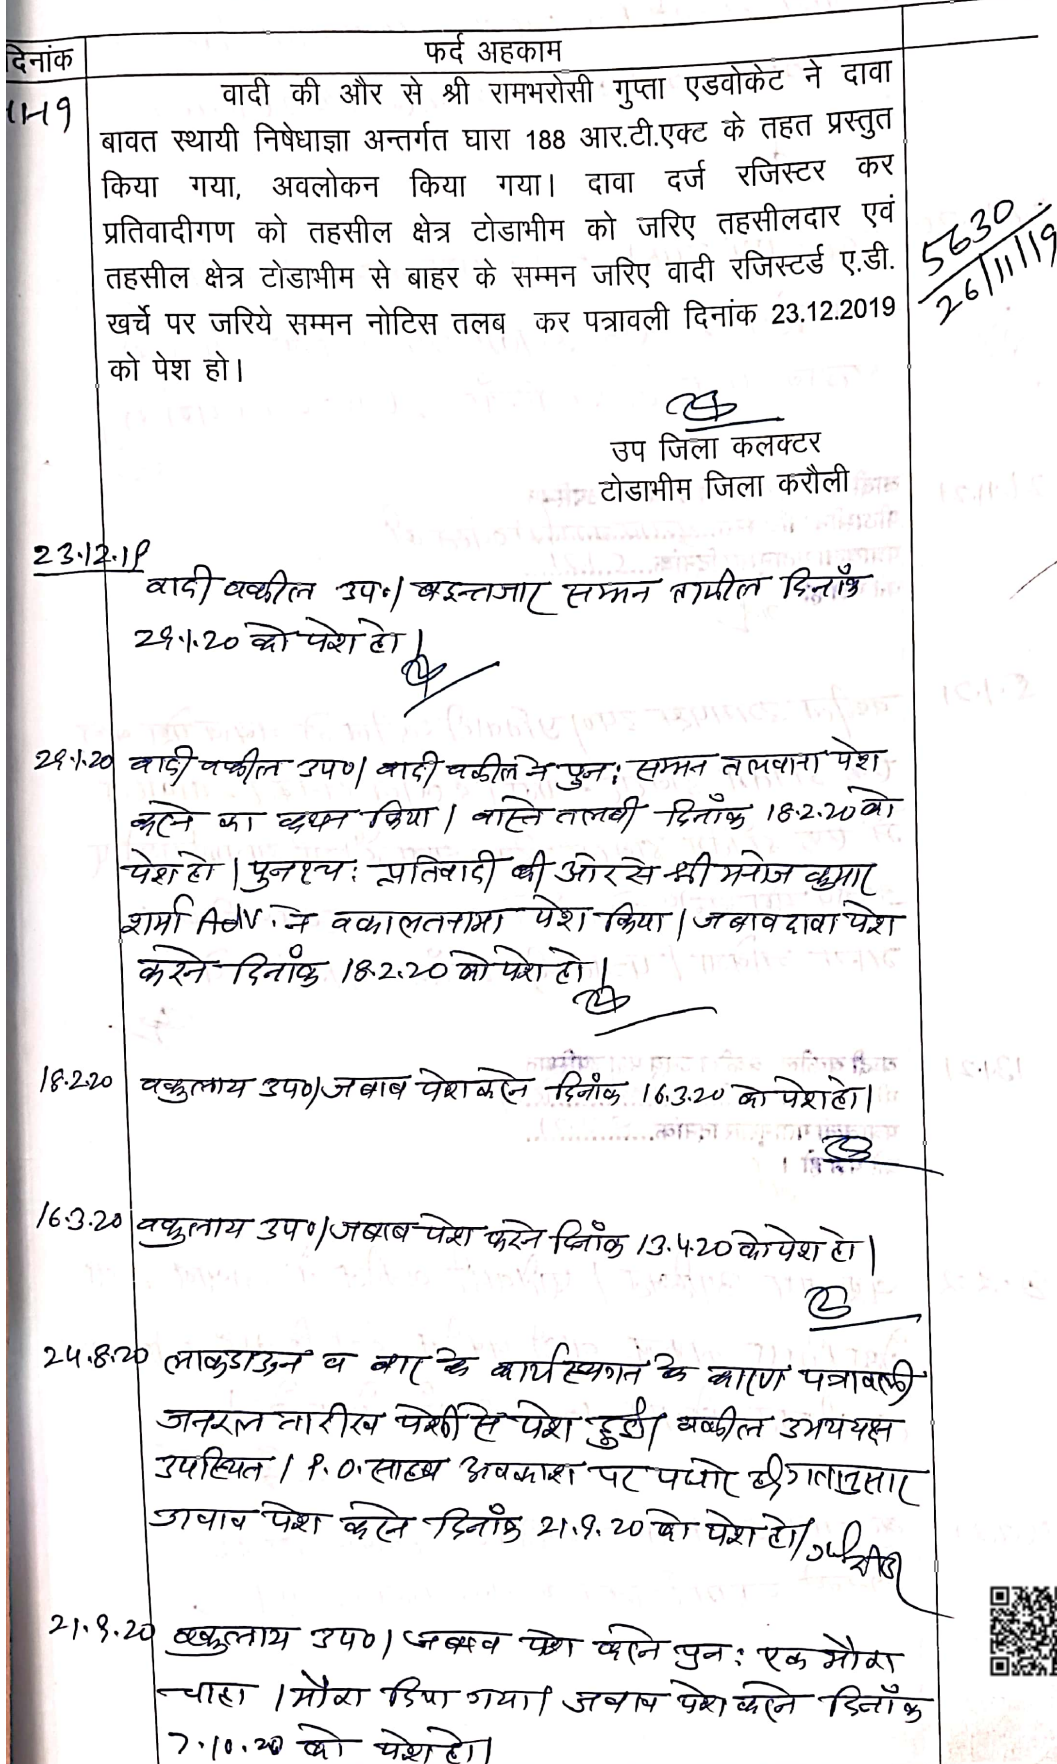 दिनांक
फर्द अहकाम
वादी की और से श्री रामभरोसी गुप्ता एडवोकेट ने दावा
बावत स्थायी निषेधाज्ञा अन्तर्गत घारा 188 आर.टी.एक्ट के तहत प्रस्तुत
किया गया, अवलोकन किया गया। दावा दर्ज रजिस्टर कर
प्रतिवादीगण को तहसील क्षेत्र टोडाभीम को जरिए तहसीलदार एवं
तहसील क्षेत्र टोडाभीम से बाहर के सम्मन जरिए वादी रजिस्टर्ड ए.डी.
खर्चे पर जरिये सम्मन नोटिस तलब कर पत्रावली दिनांक 23.12.2019
को पेश हो।
5630
26/11/19
उप जिला कलक्टर
टोडाभीम जिला करौली
23.12.19
वादी वकील उप०। बइन्तजार सम्मन तामील दिनाँक
29.1.20 को पेश हो।
29.1.20 वादी वकील उप०। वादी वकील ने पुन: सम्मन तलवाना पेश
करने का कथन किया। वास्ते तलवी दिनाँक 18.2.20 को
पेश हो। पुनश्च: प्रतिवादी की ओर से श्री मनोज कुमार
शर्मा Adv. ने वकालतनामा पेश किया। जवाव दावा पेश
करने दिनाँक 18.2.20 को पेश हो।
18.2.20 वकुलाय उप०। जवाब पेश करने दिनाँक 16.3.20 को पेश हो।
16.3.20 वकुलाय उप०। जबाब पेश करने दिनाँक 13.4.20 को पेश हो।
24.8.20 लाकडाऊन व बार के कार्य स्थगत के कारण पत्रावली
जनरल तारीख पेशी से पेश हुई। वकील उभयपक्ष
उपस्थित। P.O. साहब अवकाश पर पधारे है। गतानुसार
जवाव पेश करने दिनाँक 21.9.20 को पेश हो।
21.9.20 वकुलाय उप०। जबाव पेश करने पुन: एक मौका
चाहा। मौका दिया गया। जवाब पेश करने दिनाँक
7.10.20 को पेश हो।